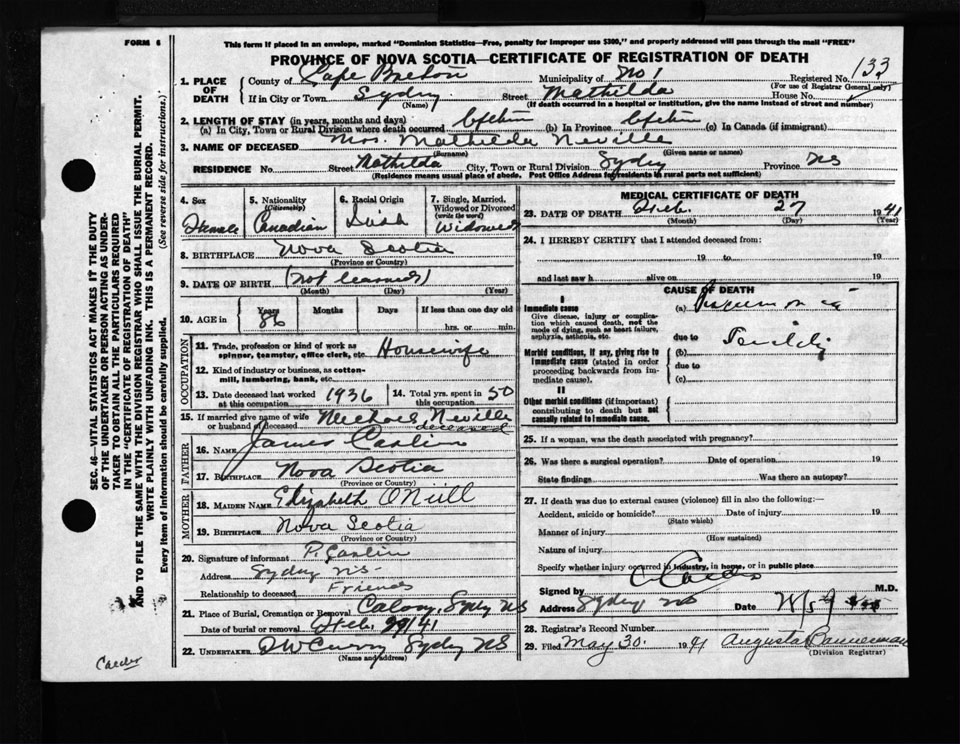 FORM 6
This form if placed in an envelope, marked "Dominion Statistics—Free, penalty for improper use $300," and properly addressed will pass through the mail "FREE"
PROVINCE OF NOVA SCOTIA—CERTIFICATE OF REGISTRATION OF DEATH
1. PLACE OF DEATH
County of Cape Breton Municipality of No 1 Registered No. 133
(For use of Registrar General only)
If in City or Town Sydney Street Mathilda House No.
(Name) (If death occurred in a hospital or institution, give the name instead of street and number)
2. LENGTH OF STAY (in years, months and days)
(a) In City, Town or Rural Division where death occurred (b) In Province (c) In Canada (if immigrant)
3. NAME OF DECEASED Mrs. Mathilda Neville
(Surname) (Given name or names)
RESIDENCE No. Street Mathilda City, Town or Rural Division Sydney Province NS
(Residence means usual place of abode. Post Office Address for residents in rural parts not sufficient)
4. Sex Female
5. Nationality (Citizenship) Canadian
6. Racial Origin Irish
7. Single, Married, Widowed or Divorced (write the word) Widowed
8. BIRTHPLACE Nova Scotia
(Province or Country)
9. DATE OF BIRTH (not learned)
(Month) (Day) (Year)
10. AGE in Years 86 Months Days If less than one day old hrs. or min.
OCCUPATION
11. Trade, profession or kind of work as spinner, teamster, office clerk, etc. Housewife
12. Kind of industry or business, as cotton-mill, lumbering, bank, etc.
13. Date deceased last worked at this occupation 1936
14. Total yrs. spent in this occupation 50
15. If married give name of wife or husband of deceased Michael Neville deceased
FATHER
16. NAME James
17. BIRTHPLACE Nova Scotia
(Province or Country)
MOTHER
18. MAIDEN NAME Elizabeth O'Neill
19. BIRTHPLACE Nova Scotia
(Province or Country)
20. Signature of informant P.
Address Sydney NS
Relationship to deceased Friends
21. Place of Burial, Cremation or Removal Sydney NS
Date of burial or removal Feb. 29/41
22. UNDERTAKER Curry Sydney NS
(Name and address)
MEDICAL CERTIFICATE OF DEATH
23. DATE OF DEATH Feb. 27 1941
(Month) (Day) (Year)
24. I HEREBY CERTIFY that I attended deceased from:
19 to 19
and last saw h alive on 19
CAUSE OF DEATH
I
Immediate cause
Give disease, injury or complication which caused death, not the mode of dying, such as heart failure, asphyxia, asthenia, etc.
(a) Pneumonia
due to
Morbid conditions, if any, giving rise to immediate cause (stated in order proceeding backwards from immediate cause).
(b)
due to
(c)
II
Other morbid conditions (if important) contributing to death but not causally related to immediate cause.
25. If a woman, was the death associated with pregnancy?
26. Was there a surgical operation? Date of operation 19
State findings Was there an autopsy?
27. If death was due to external causes (violence) fill in also the following:—
Accident, suicide or homicide? Date of injury 19
(State which)
Manner of injury
(How sustained)
Nature of injury
Specify whether injury occurred in industry, in home, or in public place
Signed by M.D.
Address Sydney NS Date
28. Registrar's Record Number
29. Filed May 30 1941 Augusta Bannerman
(Division Registrar)
SEC. 46—VITAL STATISTICS ACT MAKES IT THE DUTY
OF THE UNDERTAKER OR PERSON ACTING AS UNDERTAKER TO OBTAIN ALL THE PARTICULARS REQUIRED
IN THE "CERTIFICATE OF REGISTRATION OF DEATH"
AND TO FILE THE SAME WITH THE DIVISION REGISTRAR WHO SHALL ISSUE THE BURIAL PERMIT.
WRITE PLAINLY WITH UNFADING INK. THIS IS A PERMANENT RECORD.
Every item of information should be carefully supplied. (See reverse side for instructions.)